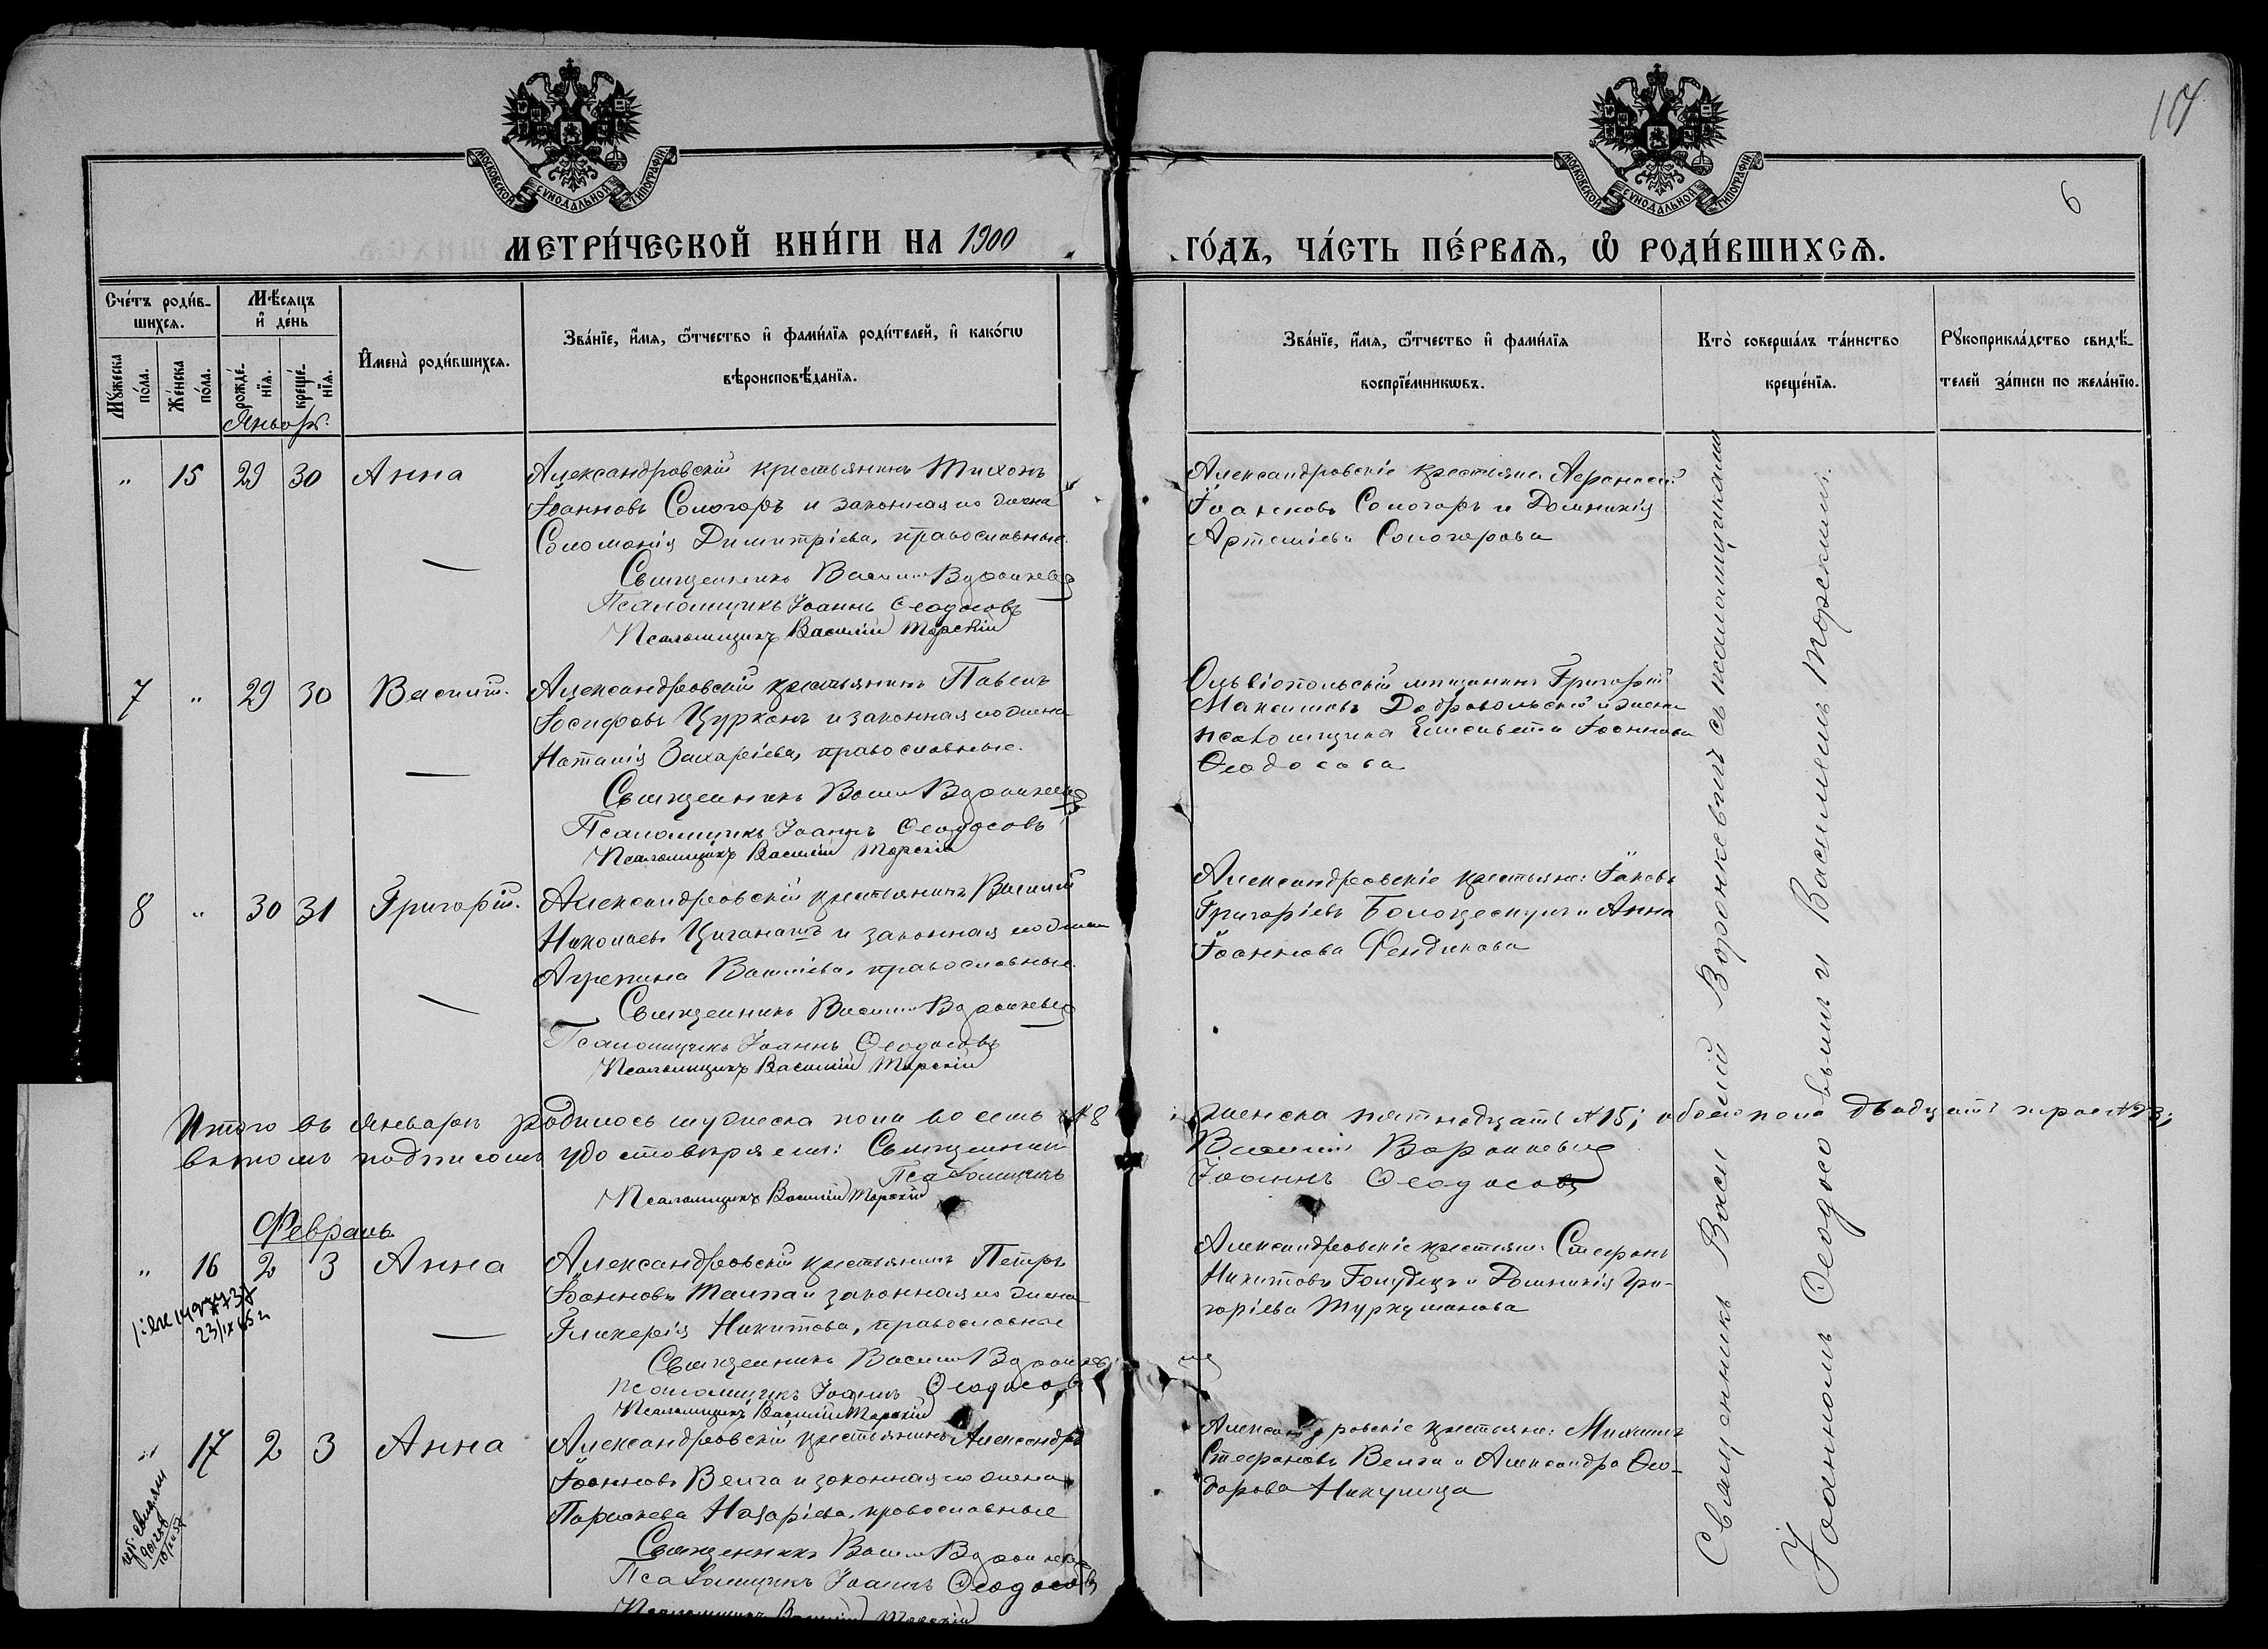 6
МОСКОВСКОЙ СѴНОДАЛЬНОЙ ТИПОГРАФІИ.
МОСКОВСКОЙ СѴНОДАЛЬНОЙ ТИПОГРАФІИ.
МЕТРИ́ЧЕСКОЙ КНИ́ГИ НА 1900
ГО́ДЪ, ЧА́СТЬ ПЕ́РВАѦ, Ѡ РОДИ́ВШИХСѦ.
Сче́тъ роди́в-
шихсѧ.
Мѣ́сѧцъ
и҆ де́нь
Мꙋ́жеска по́ла.
Же́нска по́ла.
рожде́-
нїѧ.
креще́-
нїѧ.
И҆мена̀ роди́вшихсѧ.
Зва́нїе, и҆́мѧ, ѻ҆́тчество и҆ фами́лїѧ роди́телей, и҆ како́гѡ
вѣроисповѣ́данїѧ.
Зва́нїе, и҆́мѧ, ѻ҆́тчество и҆ фами́лїѧ
воспрїе́мникѡвъ.
Кто̀ соверша́лъ та́инство
креще́нїѧ.
Рꙋкоприкла́дство свидѣ́-
телей за́писи по жела́нїю.
Январь.
" 15 29 30 Анна
Александровскій крестьянинъ Тихонъ
Іоанновъ Сологоръ и законная его жена
Соломонія Димитріева, православные.
Священникъ Василій Воронкевичъ
Псаломщикъ Іоаннъ Ѳеодосовъ
Псаломщикъ Василій Торскій
Александровскіе крестьяне: Аѳанасій
Іоанновъ Сологоръ и Домникія
Артеміева Сологорова
7 " 29 30 Василій.
Александровскій крестьянинъ Павелъ
Іосифовъ Цурканъ и законная его жена
Наталія Захаріева, православные.
Священникъ Василій Воронкевичъ
Псаломщикъ Іоаннъ Ѳеодосовъ
Псаломщикъ Василій Торскій
Ольвіопольскій мѣщанинъ Григорій
Максимовъ Добровольскій и жена
псаломщика Елисавета Іоаннова
Ѳеодосова
8 " 30 31 Григорій.
Александровскій крестьянинъ Василій
Николаевъ Циганашъ и законная его жена
Агрепина Василіева, православные.
Священникъ Василій Воронкевичъ
Псаломщикъ Іоаннъ Ѳеодосовъ
Псаломщикъ Василій Торскій
Александровскіе крестьяне: Іаковъ
Григоріевъ и Анна
Іоаннова Фендикова
Итого въ Январѣ родилось мужеска пола восемь №8
женска пятнадцать №15; обоего пола двадцать три №23;
въ чемъ подписомъ удостовѣряемъ: Священникъ
Василій Воронкевичъ
Псаломщикъ
Іоаннъ Ѳеодосовъ
Псаломщикъ Василій Торскій
Февраль
" 16 2 3 Анна
23/IX 65 г
Александровскій крестьянинъ Петръ
Іоанновъ Талпа и законная его жена
Гликерія Никитова, православные
Священникъ Василій Воронкевичъ
Псаломщикъ Іоаннъ Ѳеодосовъ
Псаломщикъ Василій Торскій
Александровскіе крестьяне: Стефанъ
Никитовъ Голубецъ и Домникія Гри-
горіева Туркуманова
" 17 2 3 Анна
Александровскій крестьянинъ Александръ
Іоанновъ Велга и законная его жена
Параскева Назаріева, православные
Священникъ Василій Воронкевичъ
Псаломщикъ Іоаннъ Ѳеодосовъ
Псаломщикъ Василій Торскій
Александровскіе крестьяне: Михаилъ
Стефановъ Велга и Александра Ѳео-
дорова Никулица
Священникъ Василій Воронкевичъ съ псаломщиками
Іоанномъ Ѳеодосовымъ и Василіемъ Торскимъ.